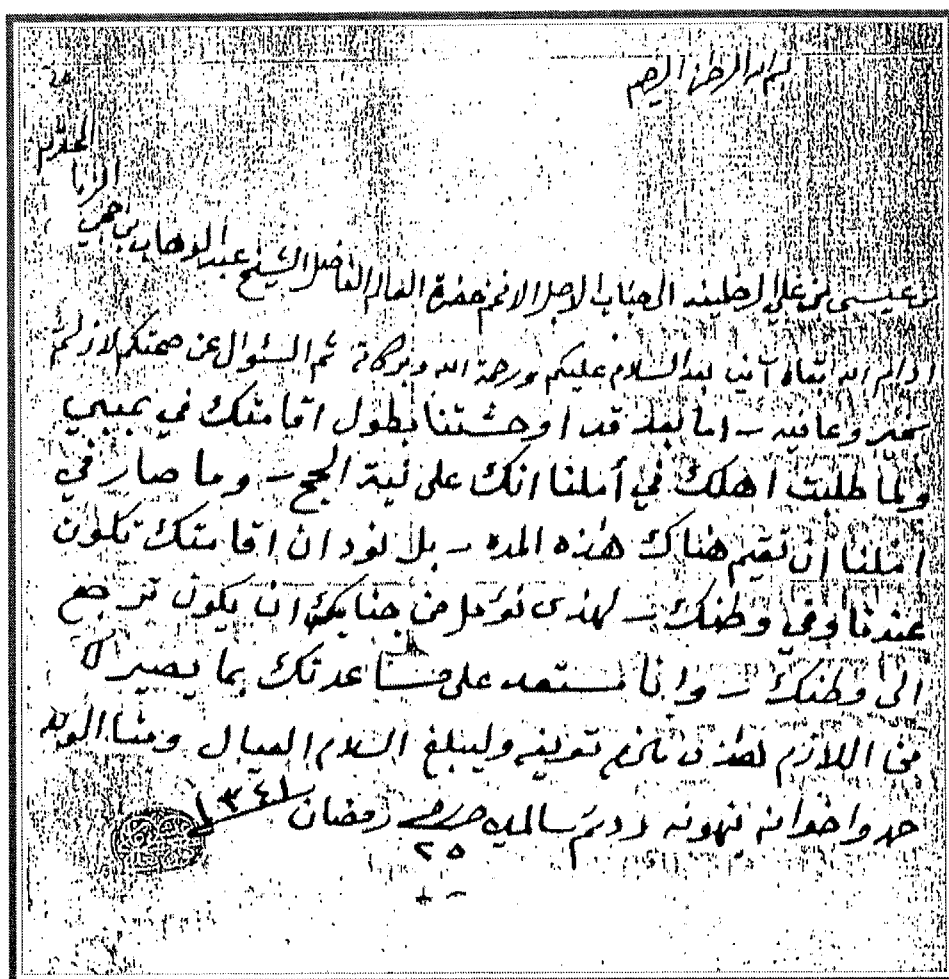 بسم الله الرحمن الرحيم
من عيسى بن علي الخليفه الى جناب الاجل الافخم حضرة العالم الفاضل الشيخ عبدالوهاب بن حجي
الزيا
المحترم
ادام الله بقاه آمين بعد السلام عليكم ورحمة الله وبركاته ثم السئوال عن صحتكم لازلتم
بخير وعافيه – اما بعد قد اوحشتنا بطول اقامتك في بمبي
ولما طلبت اهلك في أملنا انك على نية الحج – وما صار في
املنا ان تقيم هناك هذه المده – بل نود ان اقامتك تكون
عندنا وفي وطنك – لهذى نؤمل من جنابك ان يكون ترجع
الى وطنك – وانا مستعد على مساعدتك بما يصير لك
من اللازم هذى مالزم تعريفه وليبلغ السلام العيال ومنا الولد
حمد واخوانه ينهونه ودمتم سالمين حرر في رمضان ١٣٤١
٢٥